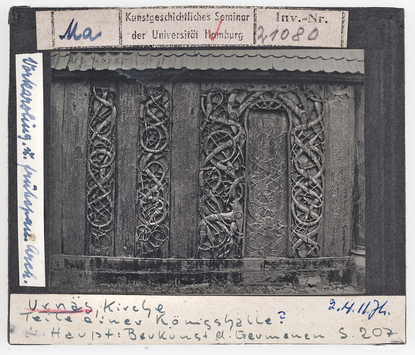 Ma
Kunstgeschichtliches Seminar
der Universität Hamburg
Inv.-Nr.
21080
Vorkaroling. u. frühroman. Arch.
Urnäs, Kirche
Teile einer Königshalle?
Haupt: Baukunst d. Germanen S. 207
2. H. 11. Jh.